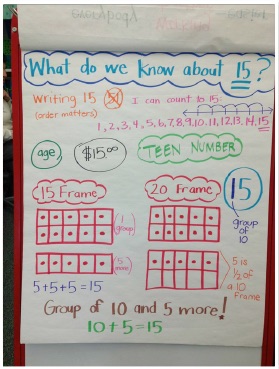 What do we know about 15?
Writing 15 51
(order matters)
I can count to 15
1,2,3,4,5,6,7,8,9,10,11,12,13,14,15
age
$15.00
TEEN NUMBER
15 Frame
20 Frame
15
(1 group)
group
of
10
(5 more)
5+5+5=15
5 is
1/2 of
a 10
frame
Group of 10 and 5 more!
10+5=15